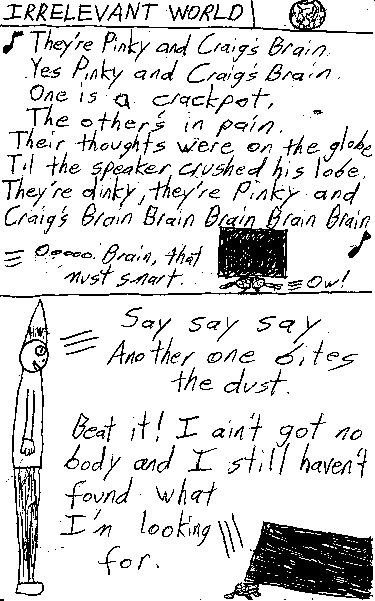 IRRELEVANT WORLD
They're Pinky and Craig's Brain.
Yes Pinky and Craig's Brain.
One is a crackpot,
The other's in pain.
Their thoughts were on the globe
Til the speaker crushed his lobe.
They're dinky, they're Pinky and
Craig's Brain Brain Brain Brain Brain
Ooooo. Brain, that
must smart.
Ow!
Say say say
Another one bites
the dust.
Beat it! I ain't got no
body and I still haven't
found what
I'm looking
for.